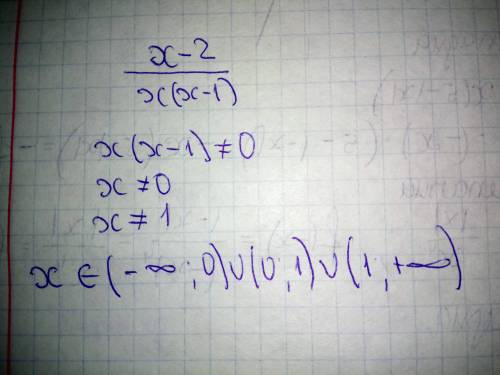 x-2
x(x-1)
x(x-1)≠0
x≠0
x≠1
x∈(-∞;0)∪(0;1)∪(1;+∞)